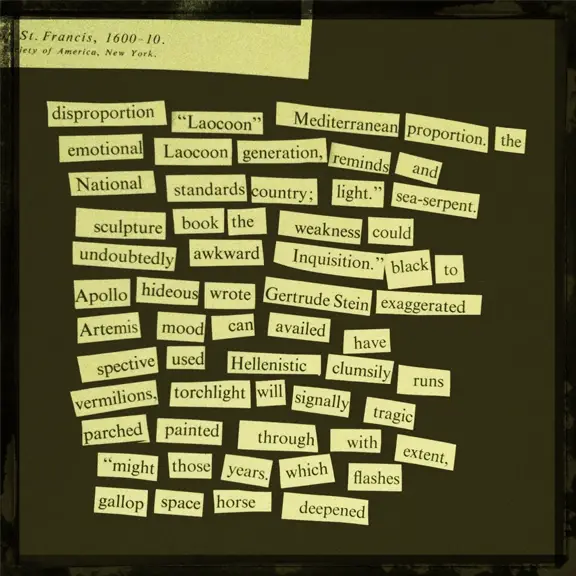 St. Francis, 1600-10.
iety of America, New York.
disproportion "Laocoon" Mediterranean proportion. the
emotional Laocoon generation, reminds and
National standards country; light." sea-serpent.
sculpture book the weakness could
undoubtedly awkward Inquisition." black to
Apollo hideous wrote Gertrude Stein exaggerated
Artemis mood can availed have
spective used Hellenistic clumsily runs
vermilions, torchlight will signally tragic
parched painted through with extent,
"might those years. which flashes
gallop space horse deepened